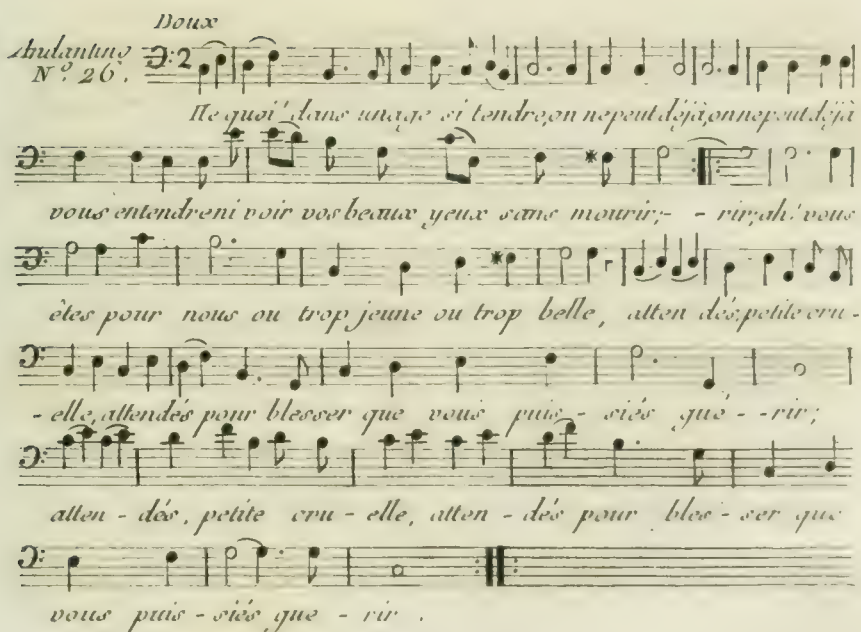 Doux
Andantino
Nº. 26.
He quoi! dans un age si tendre, on ne peut déjà, on ne peut déjà
vous entendre ni voir vos beaux yeux sans mourir; - - rir, ah! vous
êtes pour nous ou trop jeune ou trop belle, atten dés, petite cru -
- elle, attendés pour blesser que vous puis - siés gué - - rir;
atten - dés, petite cru - elle, atten - dés pour bles - ser que
vous puis - siés gue - rir .